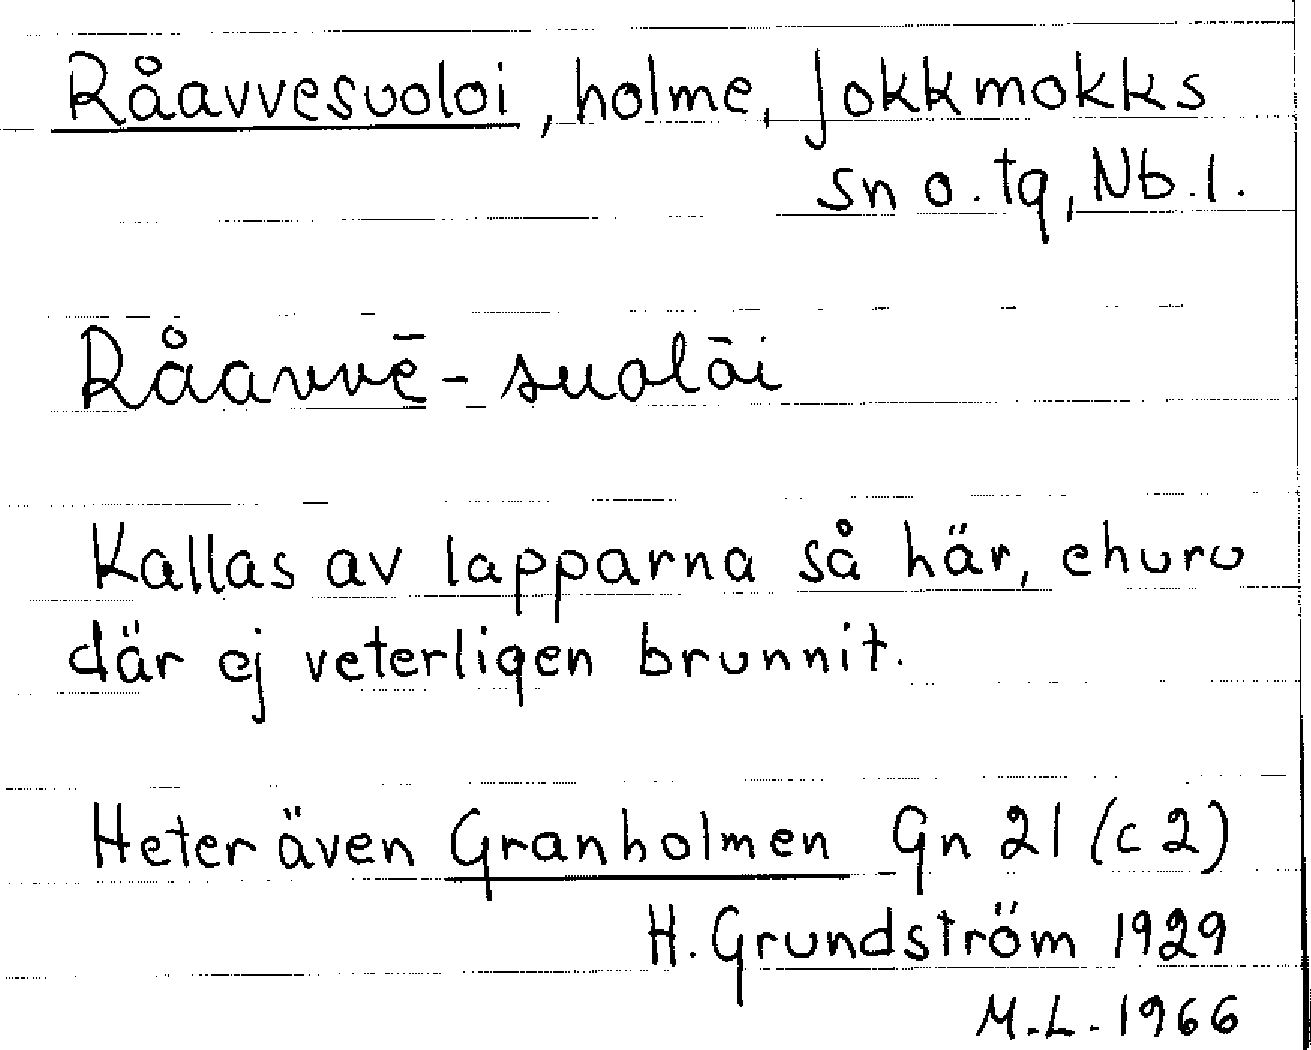 Råavvesuoloi, holme, Jokkmokks
sn o. tg, Nb. l.
Råavvē-suolāi
Kallas av lapparna så här, ehuru
där ej veterligen brunnit.
Heter även Granholmen Gn 21 (c 2)
H. Grundström 1929
M.L. 1966